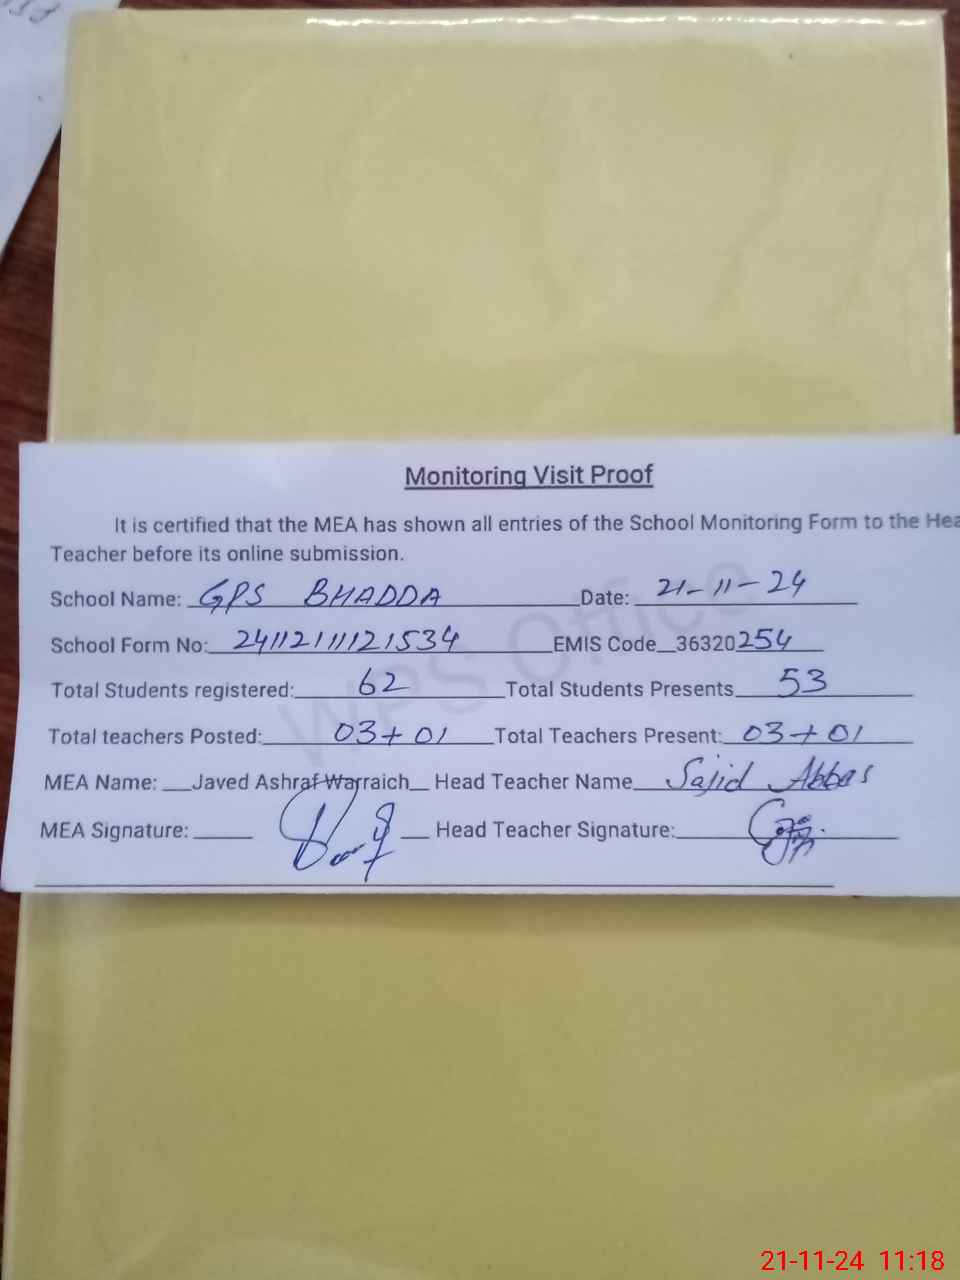 Monitoring Visit Proof
It is certified that the MEA has shown all entries of the School Monitoring Form to the Hea
Teacher before its online submission.
School Name: GPS BHADDA Date: 21-11-24
School Form No: 24112111121534 EMIS Code 36320254
Total Students registered: 62 Total Students Presents 53
Total teachers Posted: 03+01 Total Teachers Present: 03+01
MEA Name: Javed Ashraf Warraich Head Teacher Name Sajid Abbas
MEA Signature: Head Teacher Signature:
WPS Office
21-11-24 11:18